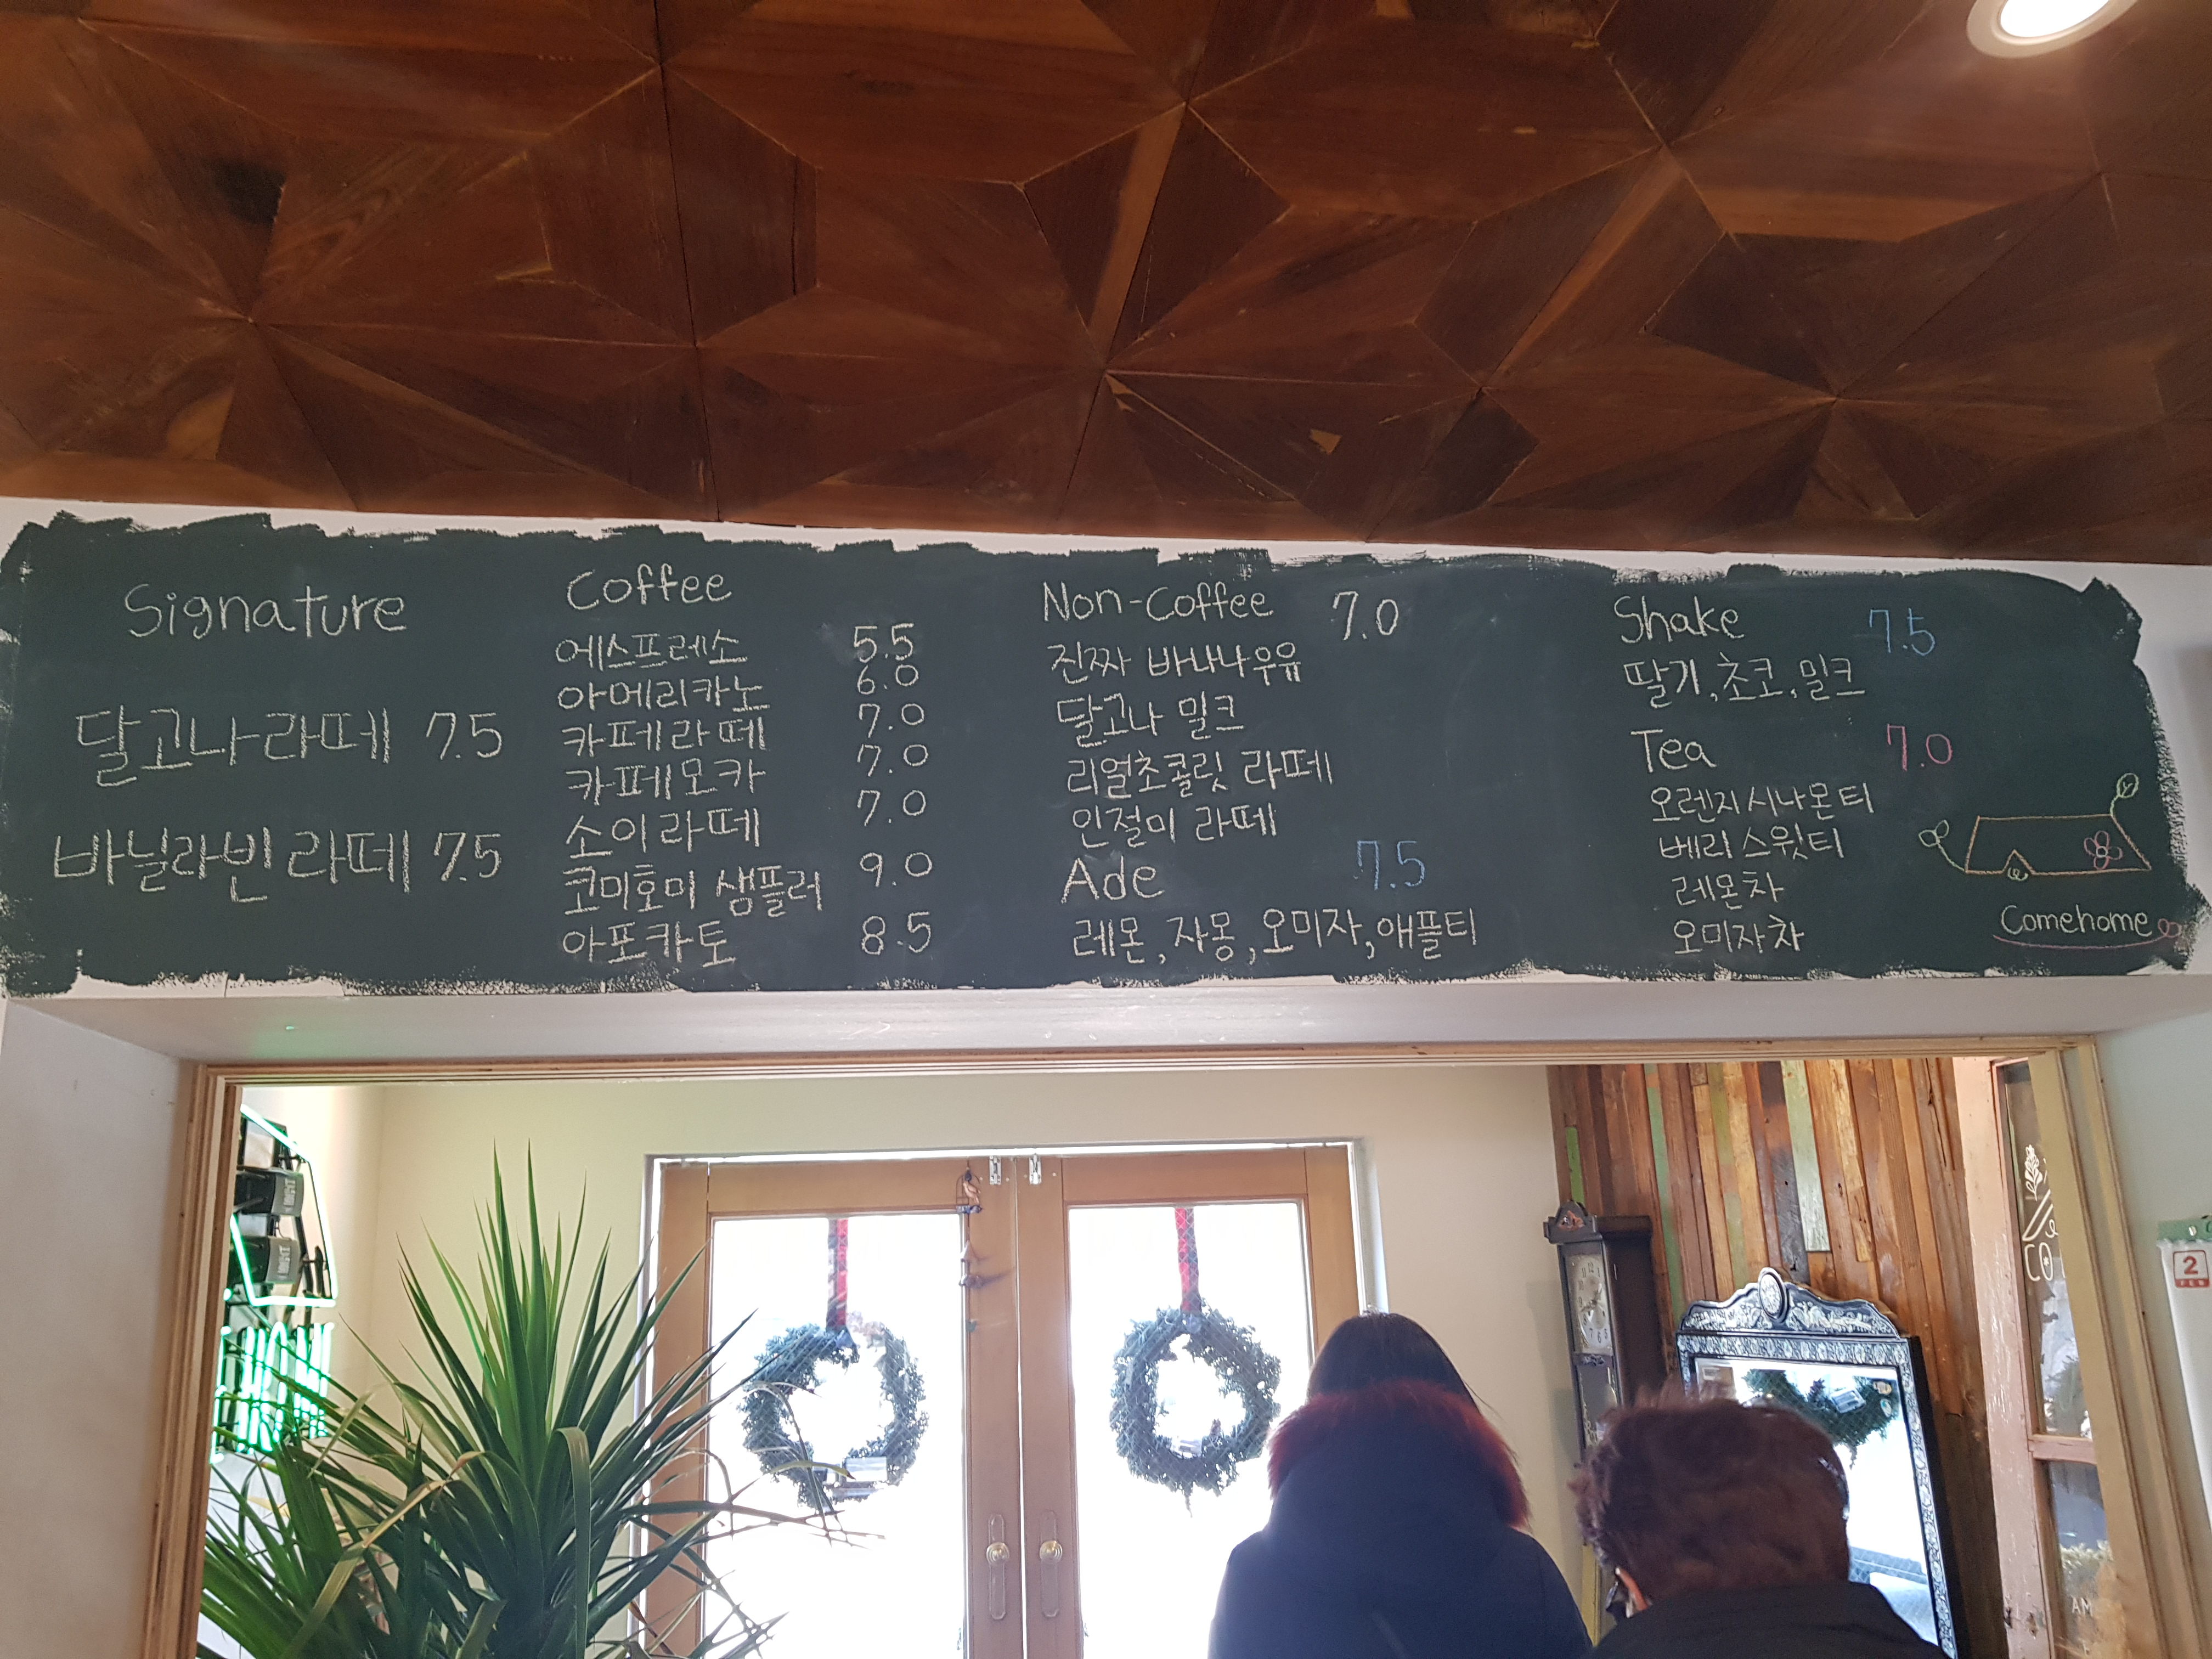 Signature
달고나라떼 7.5
바닐라빈라떼 7.5
Coffee
에스프레소 5.5
아메리카노 6.0
카페라떼 7.0
카페모카 7.0
소이라떼 7.0
코미호미 샘플러 9.0
아포카토 8.5
Non-Coffee 7.0
진짜 바나나우유
달고나 밀크
리얼초콜릿 라떼
인절미 라떼
Ade 7.5
레몬,자몽,오미자,애플티
Shake 7.5
딸기,초코,밀크
Tea 7.0
오렌지시나몬티
베리스윗티
레몬차
오미자차
Comehome
2
FEB